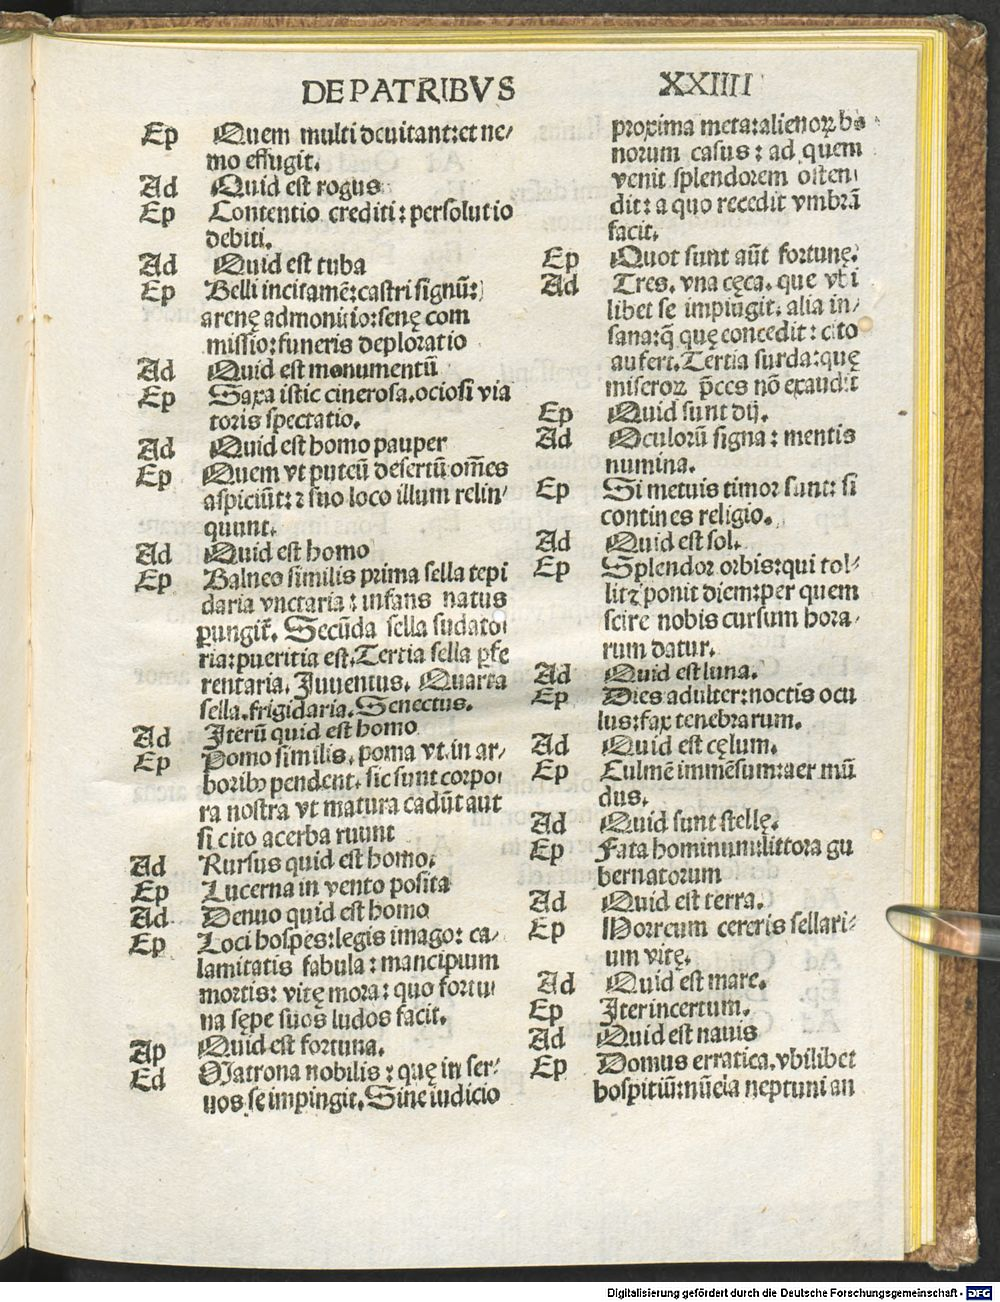 DE PATRIBVS XXIIII
Ep Quem multi deuitant: et ne/
mo effugit.
Ad Quid est rogus
Ep Contentio crediti: persolutio
debiti.
Ad Quid est tuba
Ep Belli incitamē: castri signū:
arenę admonitio: senę com
missio: funeris deploratio
Ad Quid est monumentū
Ep Saxa istic cinerosa. ociosi via
toris spectatio.
Ad Quid est homo pauper
Ep Quem vt puteū desertū om̄es
aspiciūt: ⁊ suo loco illum relin/
quunt.
Ad Quid est homo
Ep Balneo similis prima sella tepi
daria vnctaria: infans natus
ꝑungit̄. Secūda sella sudato
ria: pueritia est. Tertia sella p̄fe
rentaria. Juuentus. Quarta
sella. frigidaria. Senectus.
Ad Iterū quid est homo
Ep Pomo similis. poma vt in ar/
boribꝰ pendent. sic sunt corpo
ra nostra vt matura cadūt aut
si cito acerba ruunt
Ad Rursus quid est homo.
Ep Lucerna in vento posita
Ad Denuo quid est homo
Ep Loci hospes: legis imago: ca/
lamitatis fabula: mancipium
mortis: vitę mora: quo fortu
na sępe suos ludos facit.
Ap Quid est fortuna.
Ed Matrona nobilis: quę in ser/
uos se impingit. Sine iudicio
proxima meta: alienoꝝ bo
norum casus: ad quem
venit splendorem osten
dit: a quo recedit vmbrā
facit.
Ep Quot sunt aūt fortunę:
Ad Tres. vna cęca. que vbi
libet se impingit. alia in/
sana: q̄ quę concedit: cito
aufert. Tertia surda: quę
miseroꝝ p̄ces nō exaudit
Ep Quid sunt dij.
Ad Oculorū signa: mentis
numina.
Ep Si metuis timor sunt: si
contines religio.
Ad Quid est sol.
Ep Splendor orbis: qui tol/
lit ⁊ ponit diem: per quem
scire nobis cursum hora/
rum datur.
Ad Quid est luna.
Ep Dies adulter: noctis ocu
lus: fax tenebrarum.
Ad Quid est cęlum.
Ep Culmē immēsum: aer mū
dus.
Ad Quid sunt stellę.
Ep Fata hominum: littora gu
bernatorum
Ad Quid est terra.
Ep Horreum cereris sellari/
um vitę.
Ad Quid est mare.
Ep Iter incertum.
Ad Quid est nauis
Ep Domus erratica. vbilibet
hospitiū: nūcia neptuni an
Digitalisierung gefördert durch die Deutsche Forschungsgemeinschaft - DFG